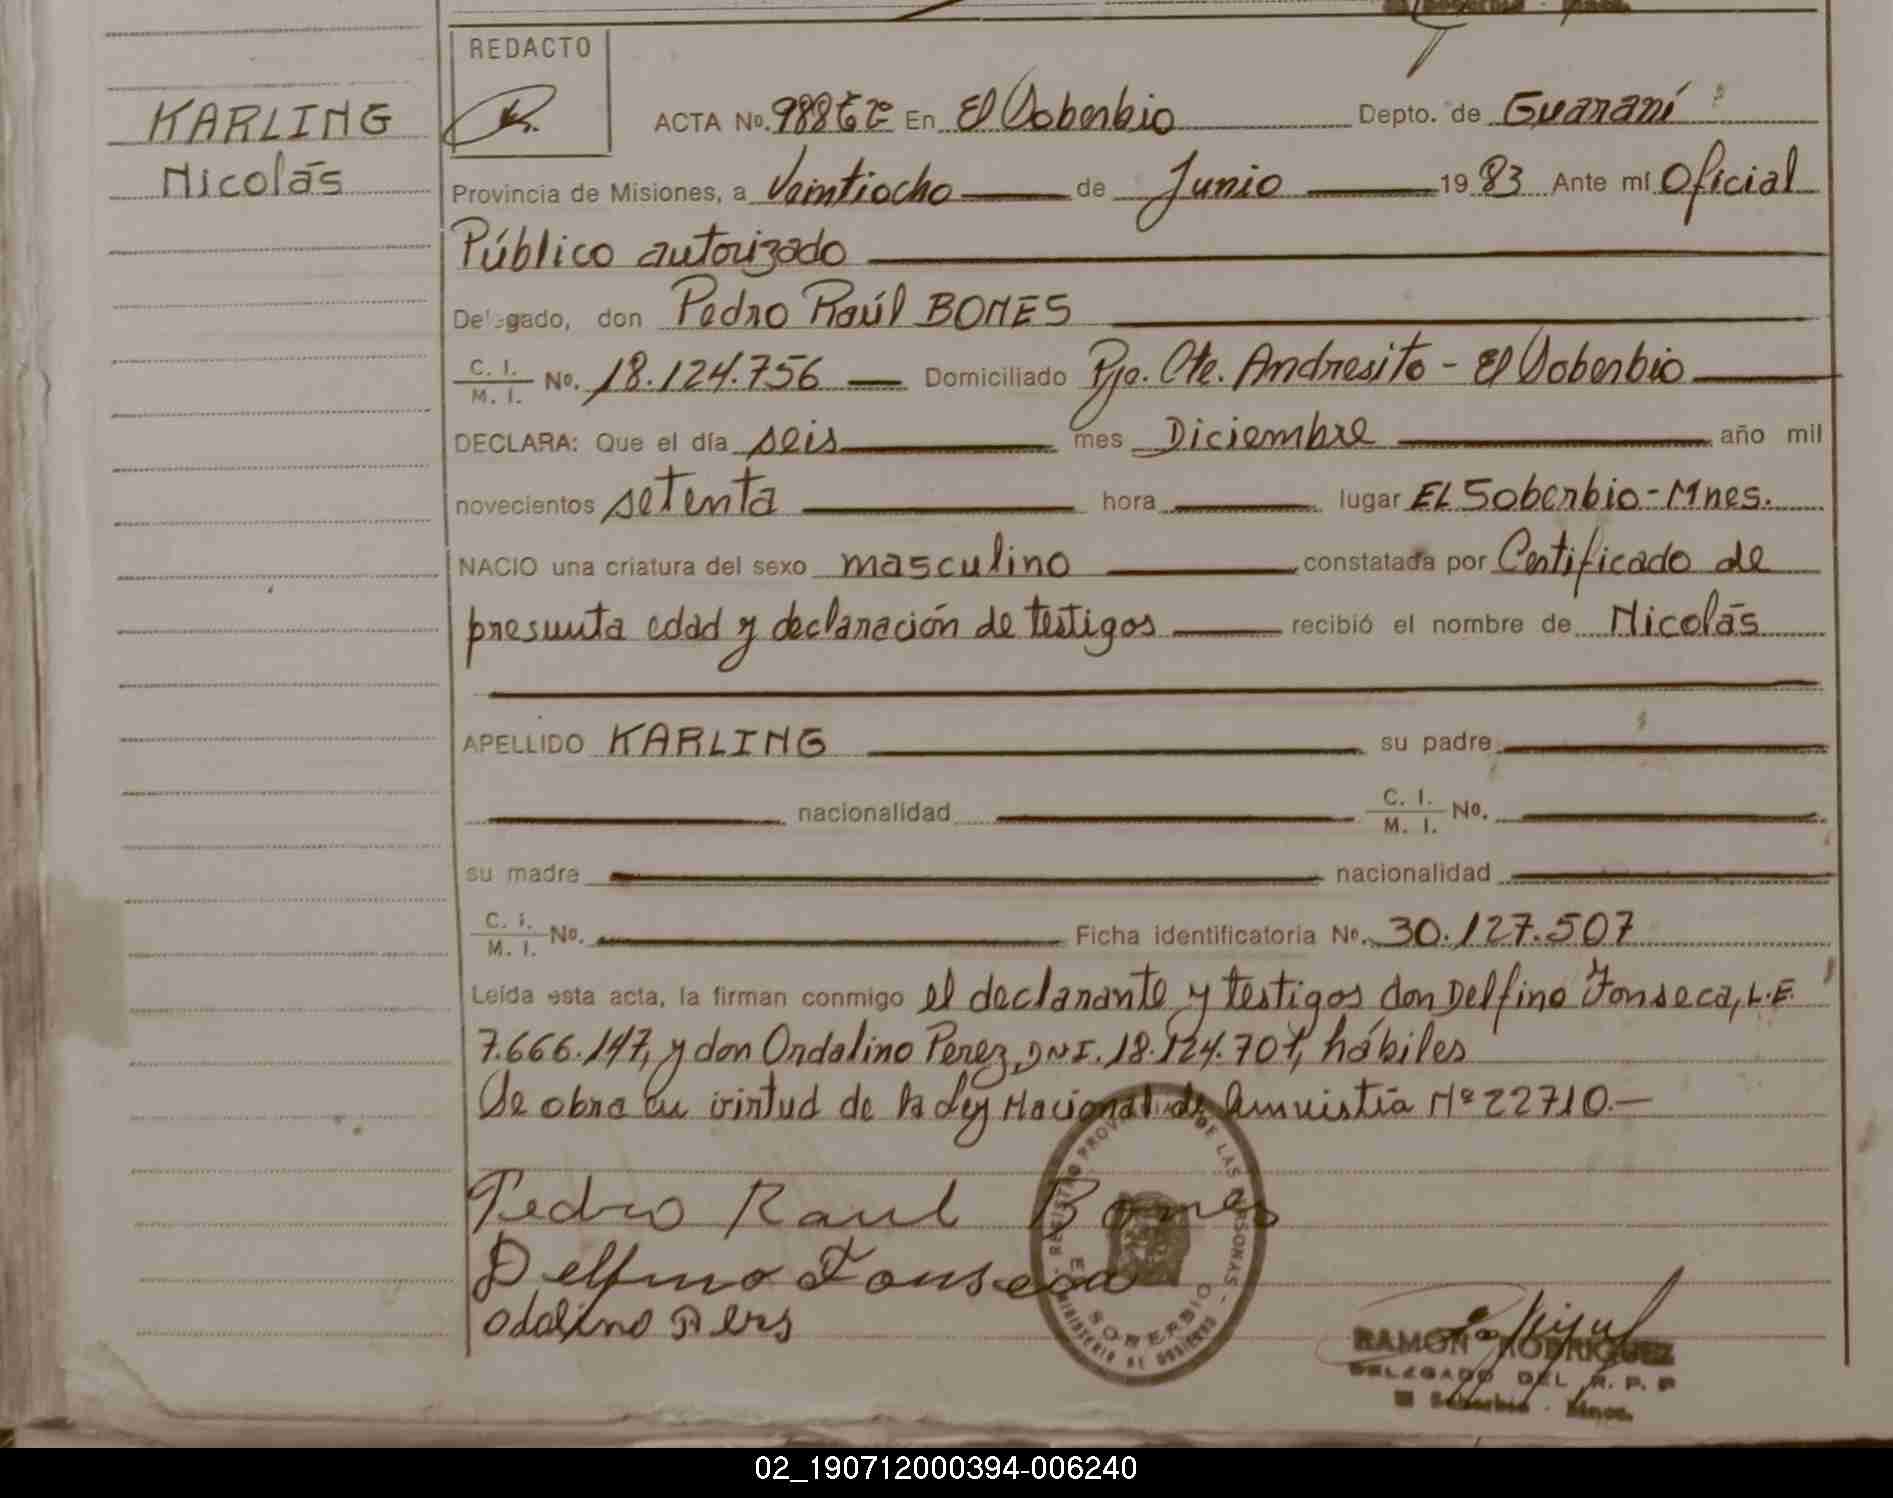 REDACTO
KARLING
Nicolás
ACTA No. 988 En El Soberbio Depto. de Guaraní
Provincia de Misiones, a Veintiocho de Junio 1983 Ante mí Oficial
Público autorizado
Delegado, don Pedro Raúl BONES
C. I. / M. I. No. 18.124.756 Domiciliado Pje. Cte. Andresito - El Soberbio
DECLARA: Que el día seis mes Diciembre año mil
novecientos setenta hora lugar EL Soberbio - Mnes.
NACIO una criatura del sexo masculino constatada por Certificado de
presunta edad y declaración de testigos recibió el nombre de Nicolás
APELLIDO KARLING su padre
nacionalidad C. I. / M. I. No.
su madre nacionalidad
C. I. / M. I. No. Ficha identificatoria No. 30.127.507
Leída esta acta, la firman conmigo el declarante y testigos don Delfino Fonseca, L.E.
7.666.147, y don Ordalino Perez, DNI. 18.124.707, hábiles
Se obra en virtud de la Ley Nacional de Amnistía Nº 22710.-
Pedro Raul Bones
Delfino Fonseca
REGISTRO PROVINCIAL DE LAS PERSONAS
EL SOBERBIO
MINISTERIO DE GOBIERNO
RAMON RODRIGUEZ
DELEGADO DEL R. P. P
El Soberbio - Mnes.
02_190712000394-006240